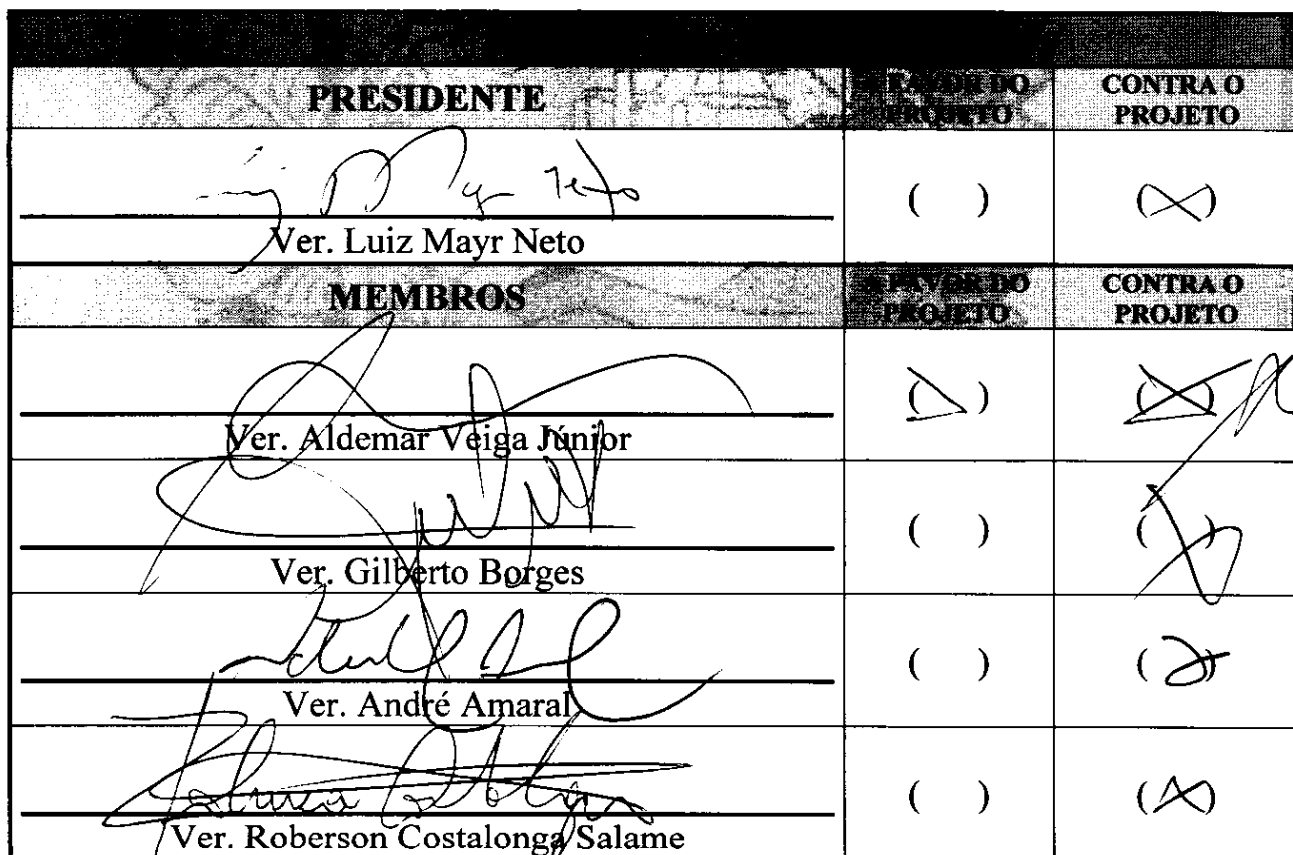 PRESIDENTE
A FAVOR DO PROJETO
CONTRA O PROJETO
( )
(X)
Ver. Luiz Mayr Neto
MEMBROS
A FAVOR DO PROJETO
CONTRA O PROJETO
Ver. Aldemar Veiga Júnior
( )
Ver. Gilberto Borges
( )
Ver. André Amaral
( )
(X)
Ver. Roberson Costalonga Salame